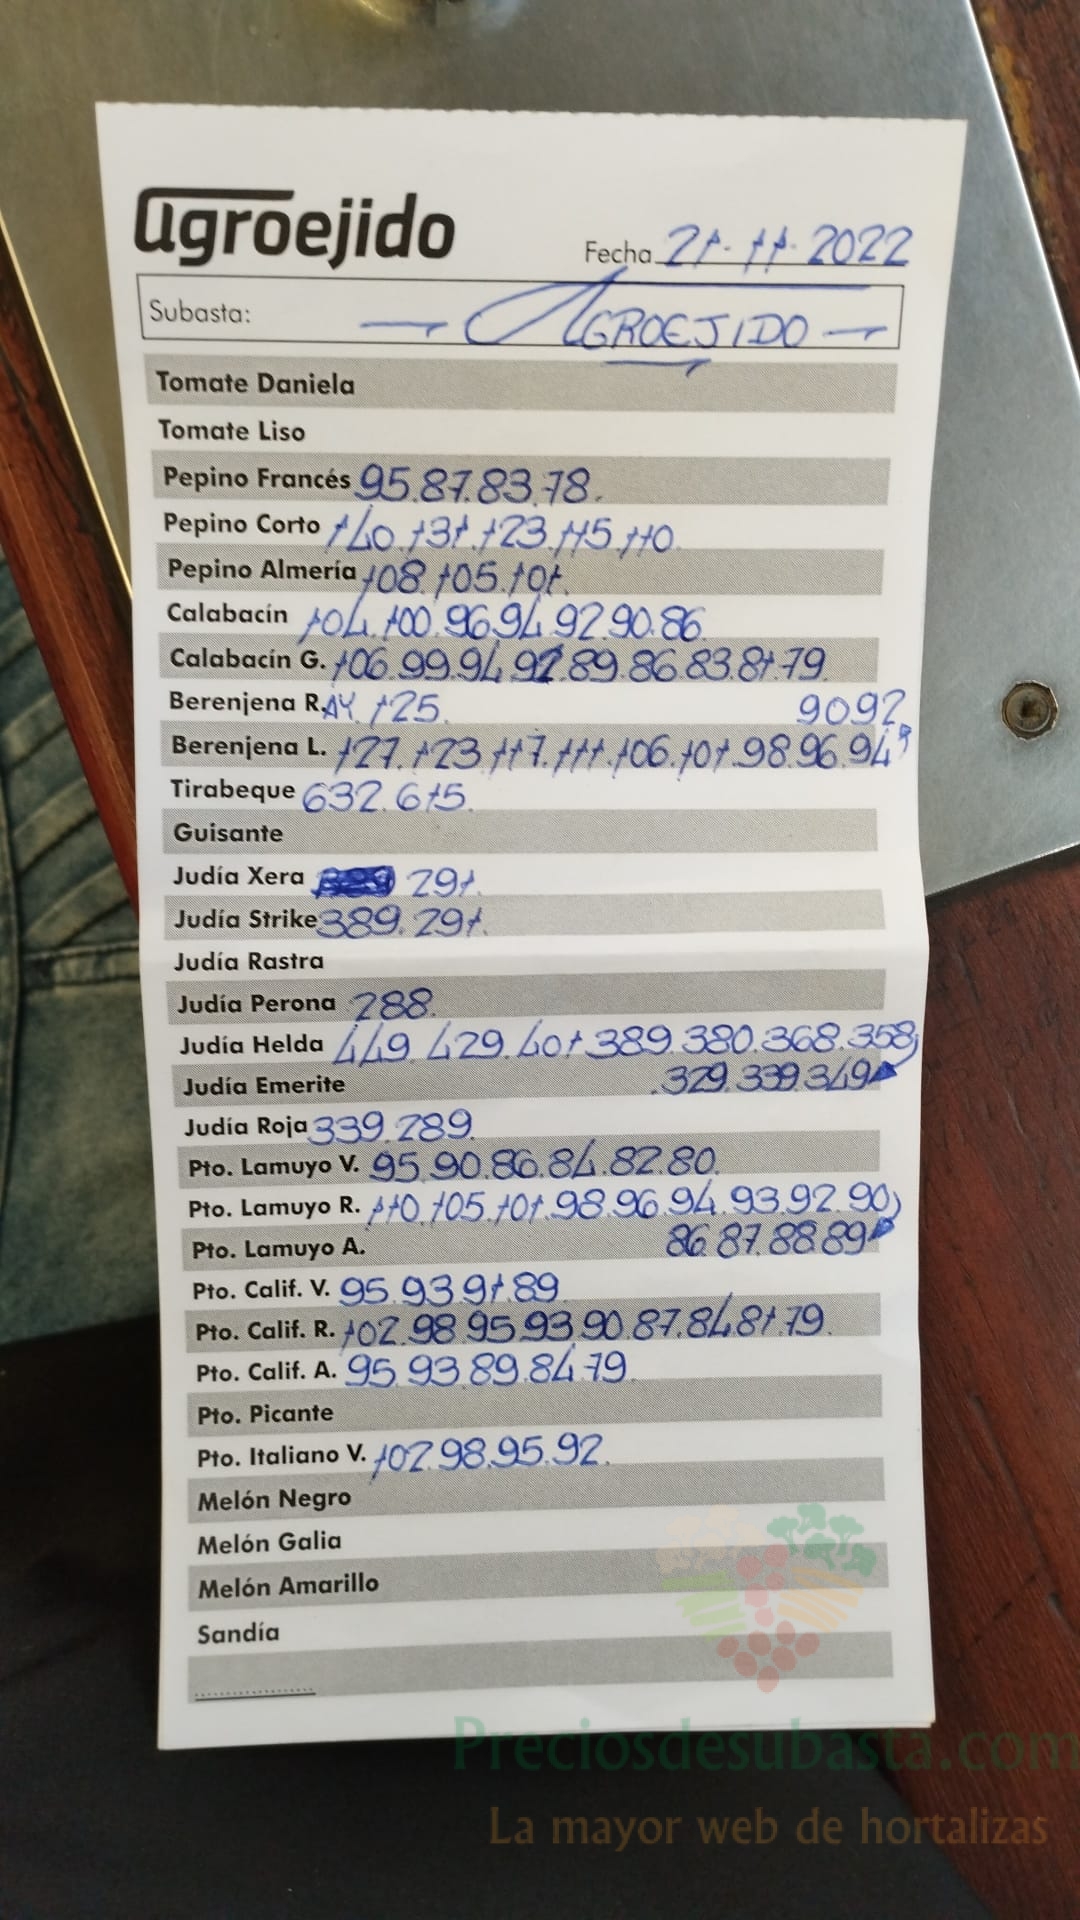 agroejido
Fecha 21-11-2022
Subasta: AGROEJIDO
Tomate Daniela
Tomate Liso
Pepino Francés 95.87.83.78.
Pepino Corto 140.131.123.115.110.
Pepino Almería 108.105.101.
Calabacín 104.100.96.94.92.90.86.
Calabacín G. 106.99.94.92.89.86.83.81.79.
Berenjena R. AY. 125. 90 92
Berenjena L. 127.123.117.111.106.101.98.96.94
Tirabeque 632.615.
Guisante
Judía Xera 291.
Judía Strike 389.291.
Judía Rastra
Judía Perona 288.
Judía Helda 449.429.401.389.380.368.358
Judía Emerite .329.339.349
Judía Roja 339.289.
Pto. Lamuyo V. 95.90.86.84.82.80.
Pto. Lamuyo R. 110.105.101.98.96.94.93.92.90
Pto. Lamuyo A. 86.87.88.89
Pto. Calif. V. 95.93.91.89
Pto. Calif. R. 102.98.95.93.90.87.84.81.79.
Pto. Calif. A. 95.93.89.84.79.
Pto. Picante
Pto. Italiano V. 102.98.95.92.
Melón Negro
Melón Galia
Melón Amarillo
Sandía
Preciosdesubasta.com
La mayor web de hortalizas